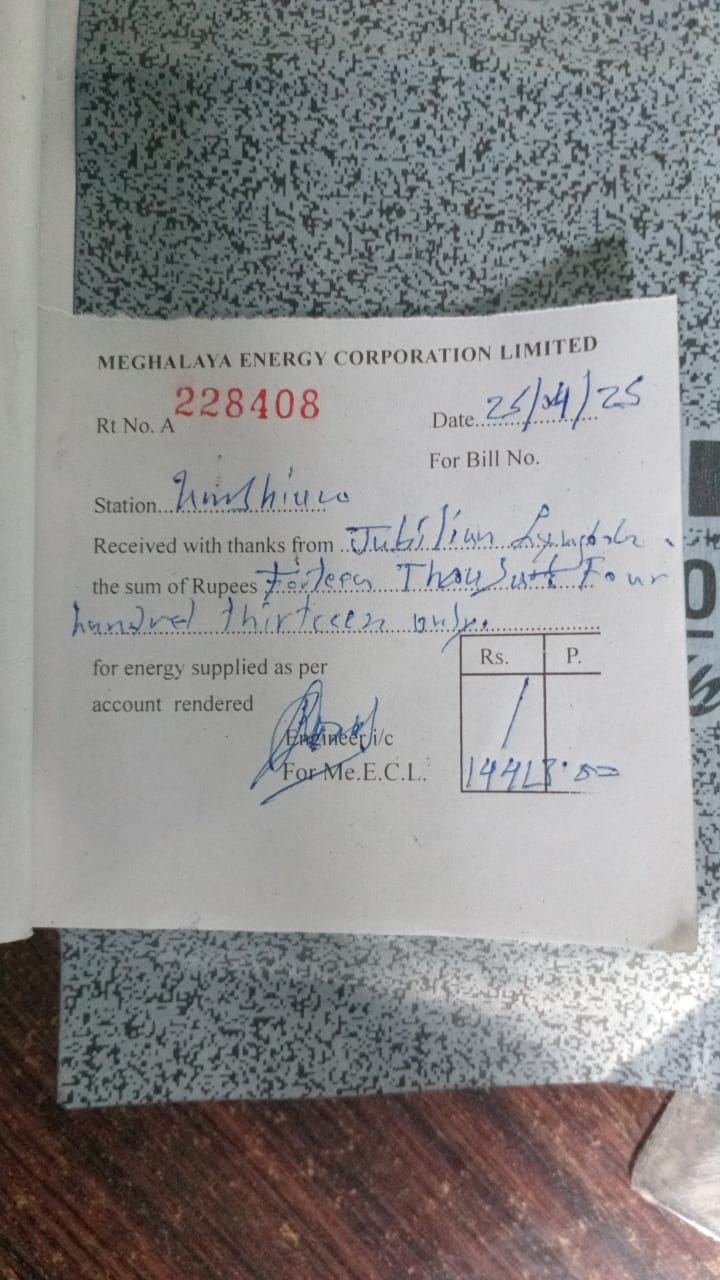 MEGHALAYA ENERGY CORPORATION LIMITED
Rt No. A 228408
Date 25/04/25
For Bill No.
Station
Received with thanks from Jubilian
the sum of Rupees Fourteen Thousand Four
hundred thirteen only.
for energy supplied as per
account rendered
Rs. P.
14413.00
Engineer i/c
For Me.E.C.L.